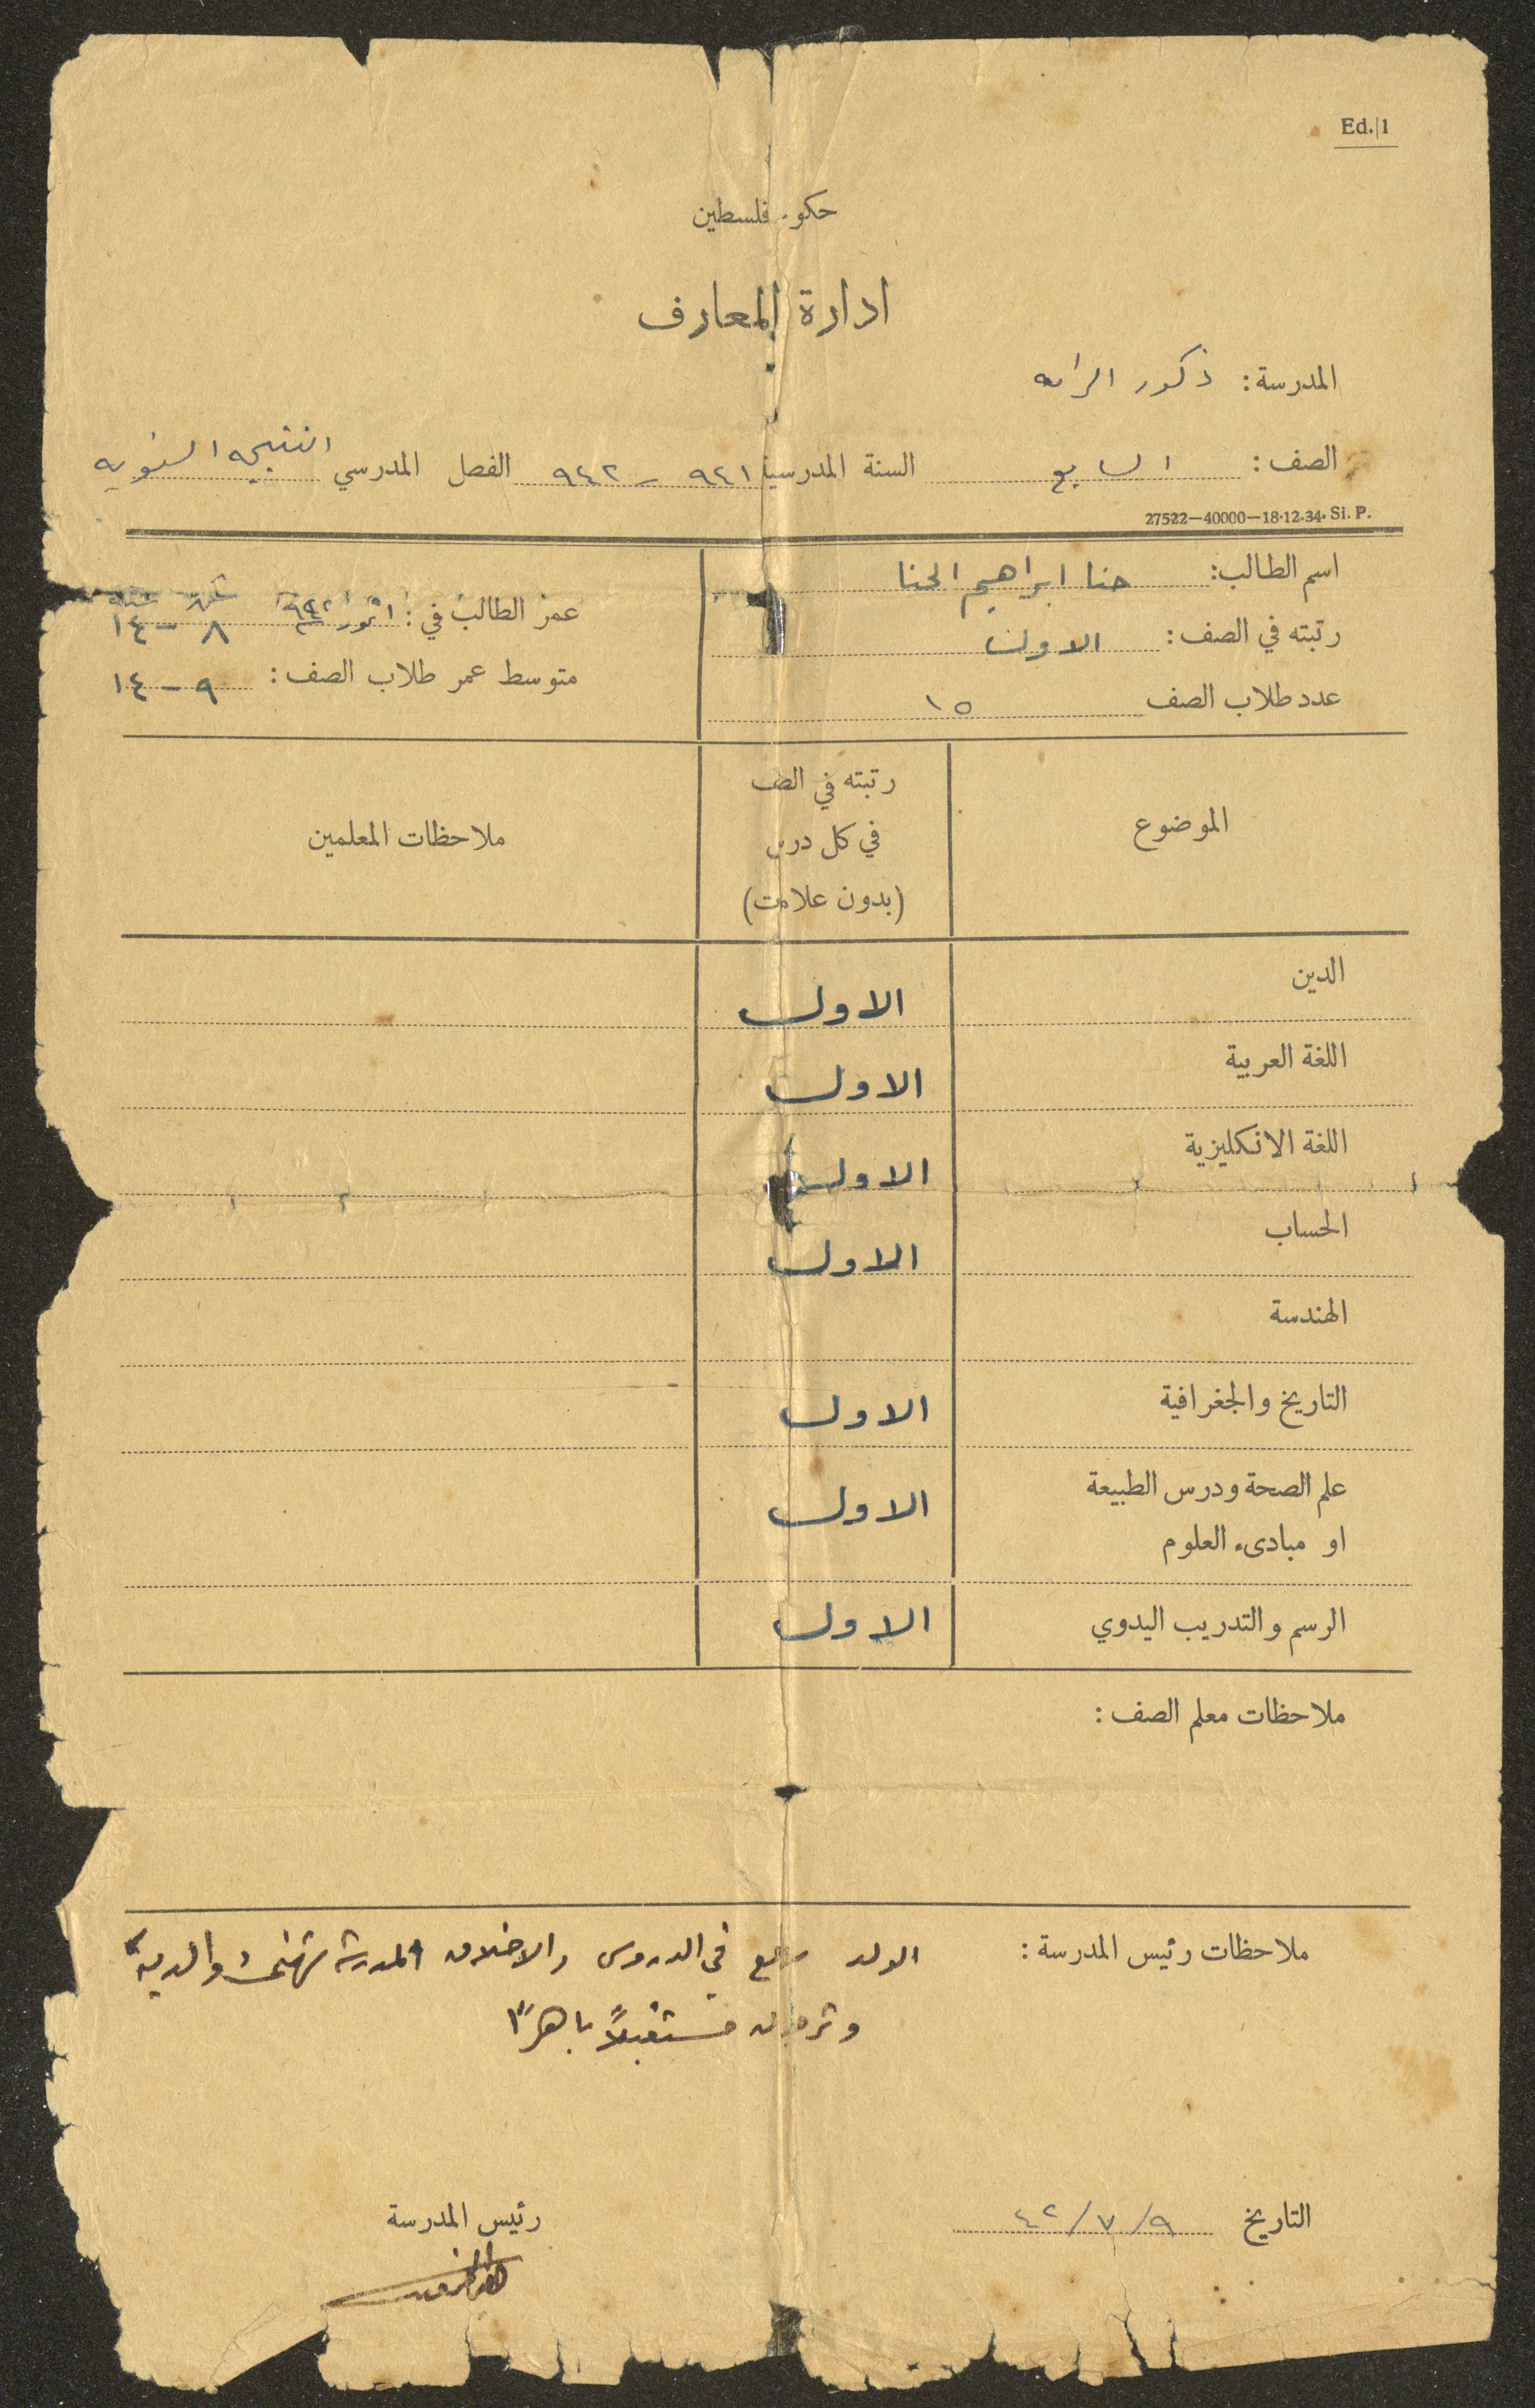 Ed./1
حكو فلسطين
ادارة المعارف
المدرسة: ذكور الرامه
الصف: السابع السنة المدرسية ٩٤١ - ٩٤٢ الفصل المدرسي النتيجه السنويه
27522—40000—18.12.34. Si. P.
اسم الطالب: حنا ابراهيم الحنا
رتبته في الصف: الاول
عدد طلاب الصف ١٥
شهر سنه
عمر الطالب في: ١ تموز ٩٤٢ ٨ - ١٤
متوسط عمر طلاب الصف: ٩ - ١٤
الموضوع
رتبته في الصف
في كل درس
(بدون علامت)
ملاحظات المعلمين
الدين الاول
اللغة العربية الاول
اللغة الانكليزية الاول
الحساب الاول
الهندسة
التاريخ والجغرافية الاول
علم الصحة ودرس الطبيعة
او مبادىء العلوم الاول
الرسم والتدريب اليدوي الاول
ملاحظات معلم الصف:
ملاحظات رئيس المدرسة: الولد في الدروس والاخلاق المدرسة تهنئ والديه
وترجو له مستقبلاً باهراً
التاريخ ٩/٧/٤٢
رئيس المدرسة